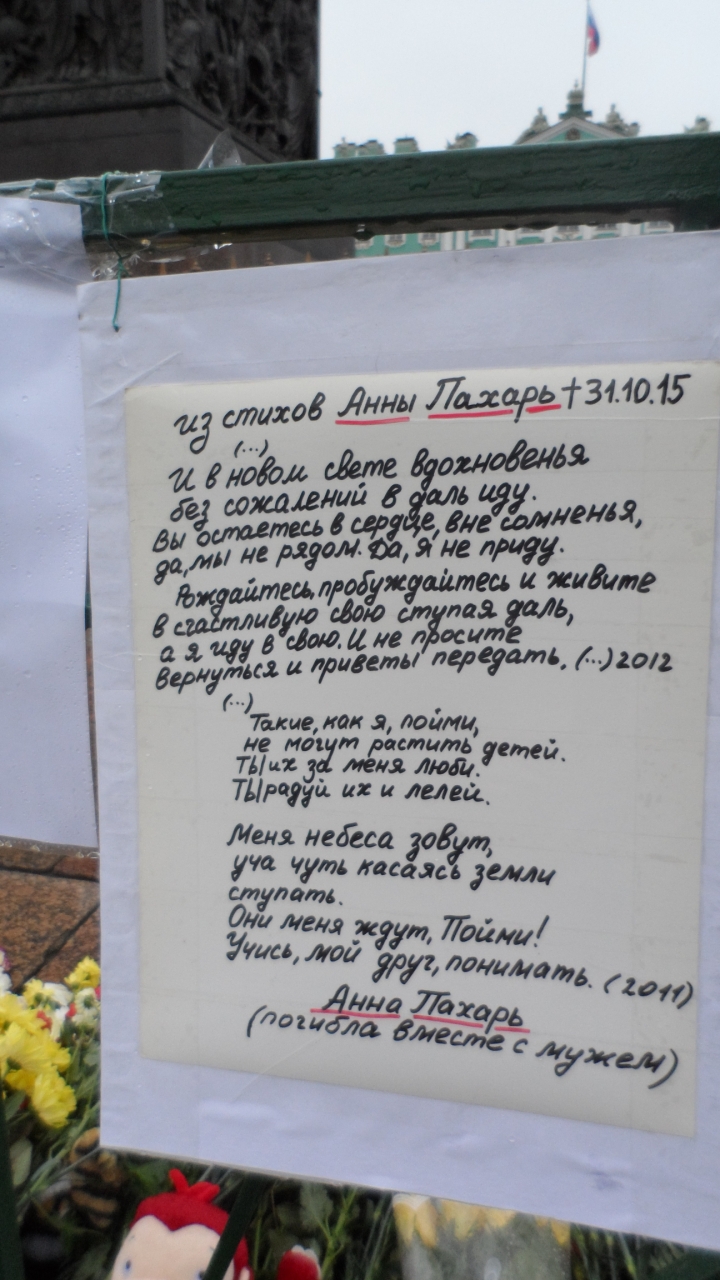 из стихов Анны Пахарь † 31.10.15
(...)
И в новом свете вдохновенья
без сожалений в даль иду.
Вы остаетесь в сердце, вне сомненья,
да, мы не рядом. Да, я не приду.
Рождайтесь, пробуждайтесь и живите
в счастливую свою ступая даль,
а я иду в свою. И не просите
вернуться и приветы передать. (...) 2012
(...)
Такие, как я, пойми,
не могут растить детей.
Ты их за меня люби.
Ты радуй их и лелей.
Меня небеса зовут,
уча чуть касаясь земли
ступать.
Они меня ждут, Пойми!
Учись, мой друг, понимать. (2011)
Анна Пахарь
(погибла вместе с мужем)